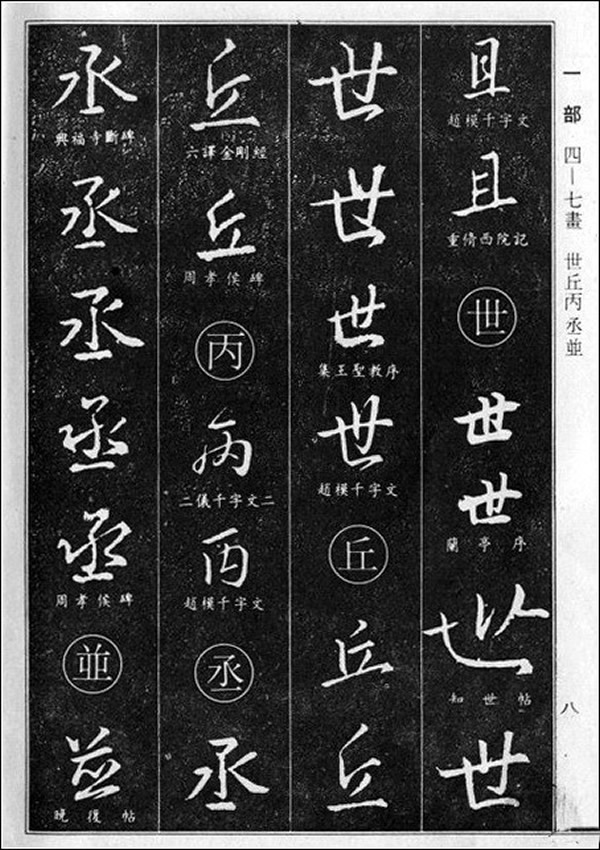 一部 四—七畫 世丘丙丞並
八
且
趙模千字文
且
重脩西院記
世
世
世
蘭亭序
世
知世帖
世
世
世
世
集王聖教序
世
趙模千字文
丘
丘
丘
丘
六譯金剛經
丘
周孝侯碑
丙
病
二儀千字文二
丙
趙模千字文
丞
丞
丞
興福寺斷碑
丞
丞
丞
丞
周孝侯碑
並
並
晚復帖